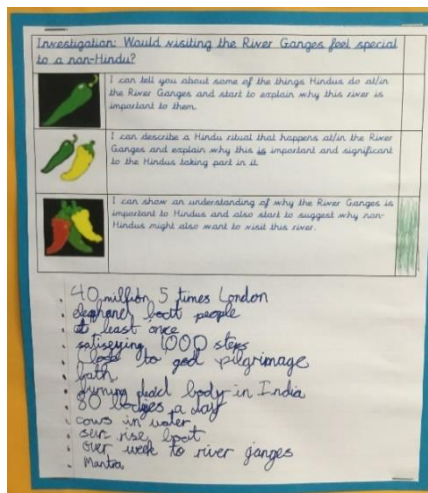 Investigation: Would visiting the River Ganges feel special
to a non-Hindu?
I can tell you about some of the things Hindus do at/in
the River Ganges and start to explain why this river is
important to them.
I can describe a Hindu ritual that happens at/in the River
Ganges and explain why this is important and significant
to the Hindus taking part in it.
I can show an understanding of why the River Ganges is
important to Hindus and also start to suggest why non-
Hindus might also want to visit this river.
40 million 5 times London
boat people
at least once
1000 steps
Close to god pilgrimage
bath
body in India
80 bodges a day
cows in water
sun rise boat
over week to river ganges
Mantra